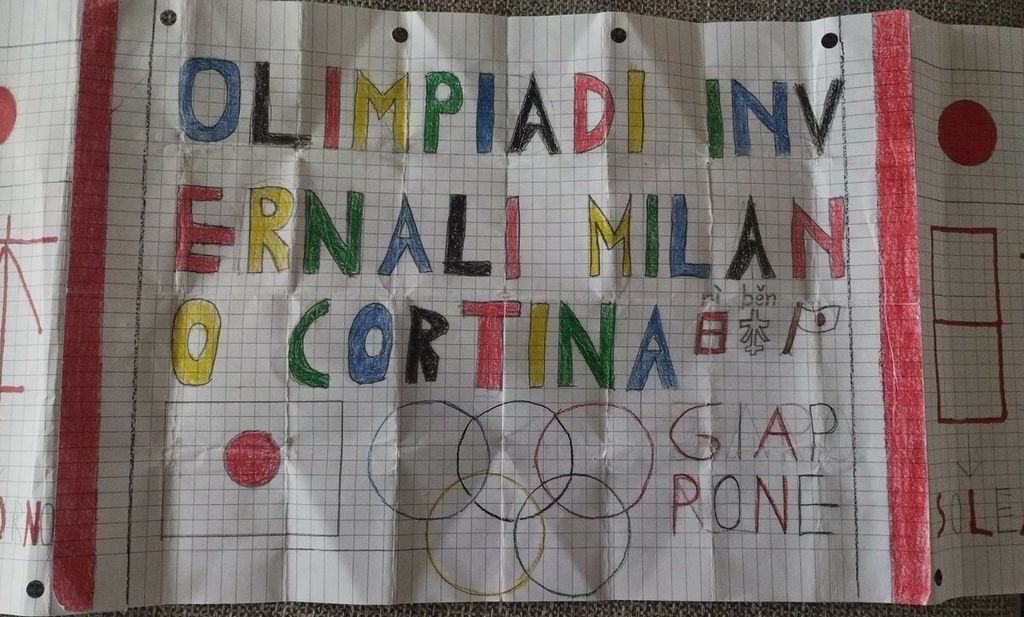 OLIMPIADI INV
ERNALI MILAN
O CORTINA
nì běn
日 本
GIAP
PONE
SOLE